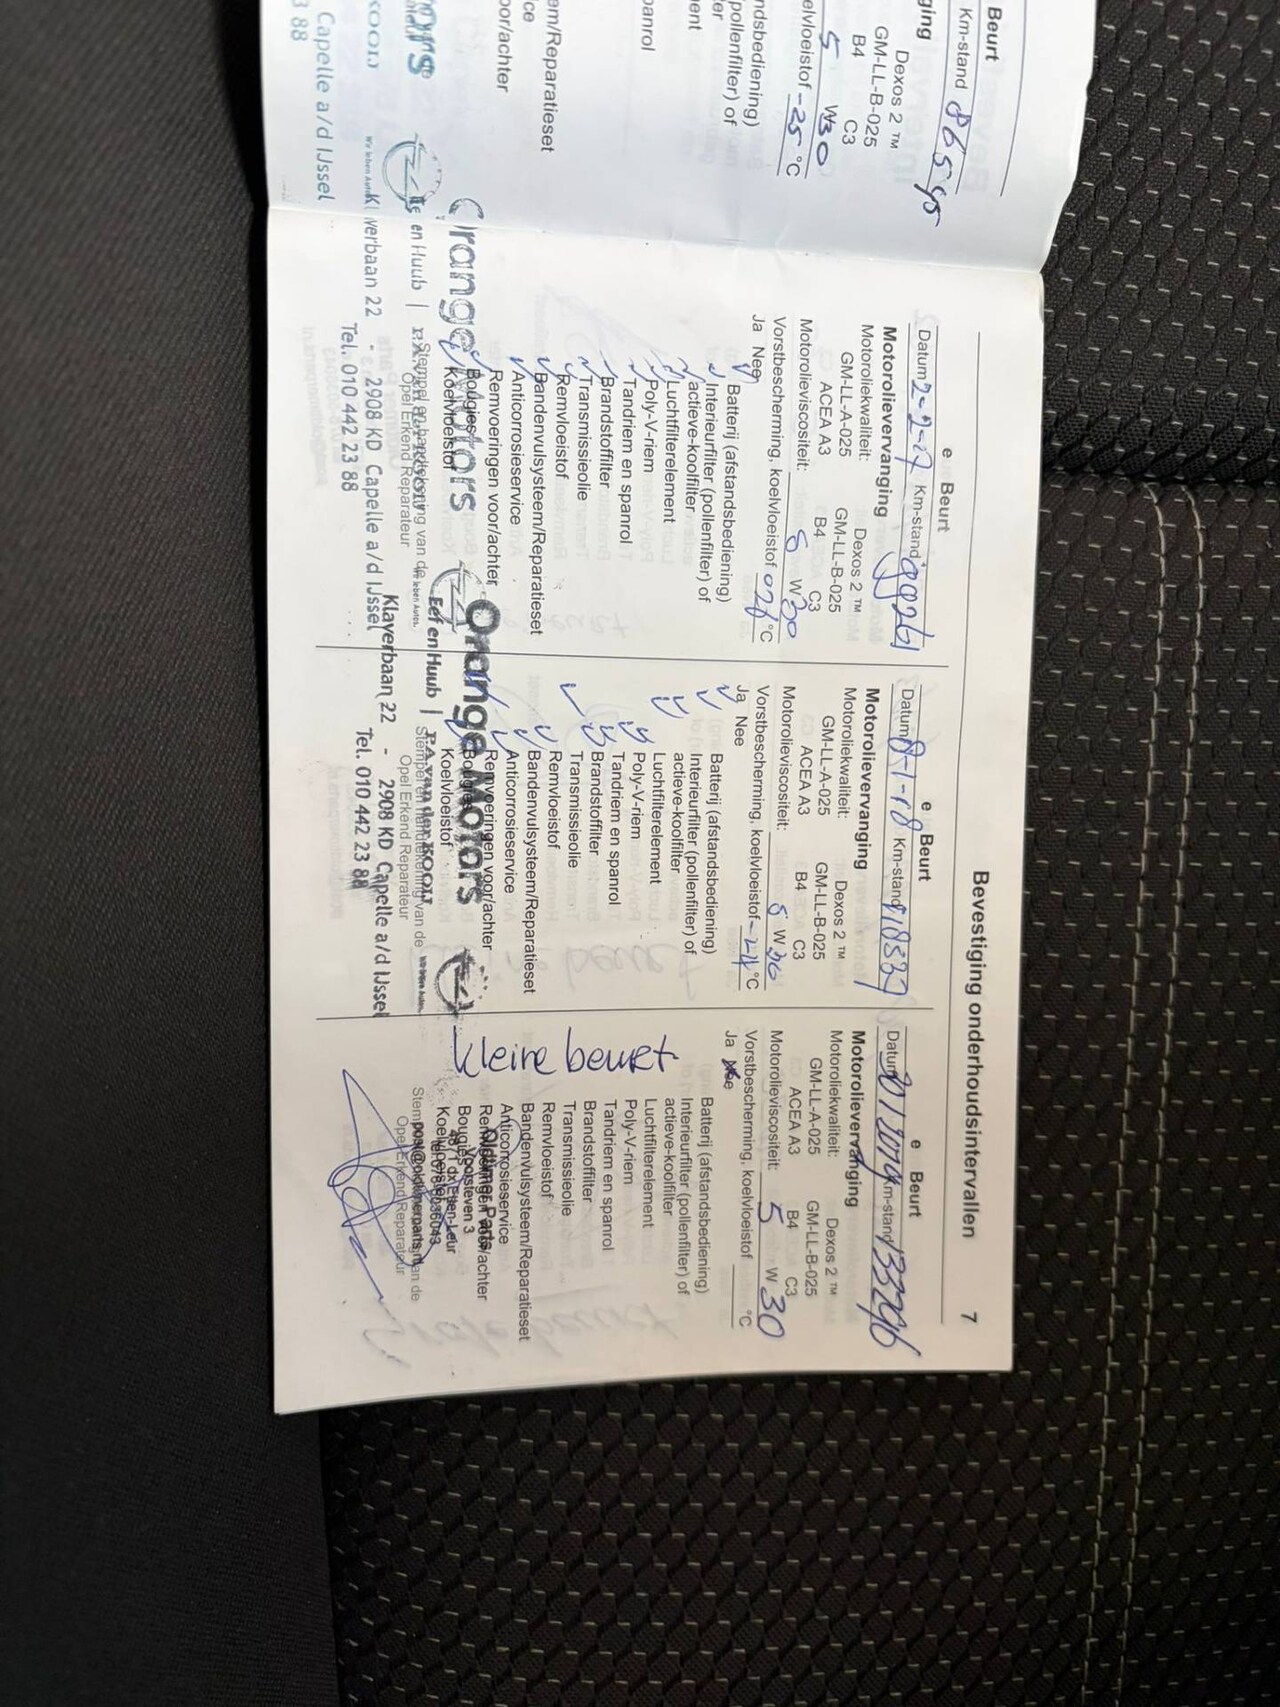 Beurt
Km-stand 86545
ging
Dexos 2 ™
GM-LL-B-025
B4 C3
5 W30
elvloeistof -25 °C
ndsbediening)
pollenfilter) of
ent
panrol
em/Reparatieset
oor/achter
Capelle a/d IJssel
3 88
Bevestiging onderhoudsintervallen 7
e Beurt
Datum 2-2-17 Km-stand 99261
Motorolievervanging
Motoroliekwaliteit: Dexos 2 ™
GM-LL-A-025 GM-LL-B-025
ACEA A3 B4 C3
Motorolieviscositeit: 5 W 30
Vorstbescherming, koelvloeistof -26 °C
Ja Nee
Batterij (afstandsbediening)
Interieurfilter (pollenfilter) of
actieve-koolfilter
Luchtfilterelement
Poly-V-riem
Tandriem en spanrol
Brandstoffilter
Transmissieolie
Remvloeistof
Bandenvulsysteem/Reparatieset
Anticorrosieservice
Remvoeringen voor/achter
Bougies
Koelvloeistof
Stempel en handtekening van de
Opel Erkend Reparateur
Orange Motors
en Huub |
Klaverbaan 22 - 2908 KD Capelle a/d IJssel
Tel. 010 442 23 88
e Beurt
Datum 8-1-18 Km-stand 118329
Motorolievervanging
Motoroliekwaliteit: Dexos 2 ™
GM-LL-A-025 GM-LL-B-025
ACEA A3 B4 C3
Motorolieviscositeit: 5 W 30
Vorstbescherming, koelvloeistof -24 °C
Ja Nee
Batterij (afstandsbediening)
Interieurfilter (pollenfilter) of
actieve-koolfilter
Luchtfilterelement
Poly-V-riem
Tandriem en spanrol
Brandstoffilter
Transmissieolie
Remvloeistof
Bandenvulsysteem/Reparatieset
Anticorrosieservice
Remvoeringen voor/achter
Bougies
Koelvloeistof
Stempel en handtekening van de
Opel Erkend Reparateur
Orange Motors
Eef en Huub | P.A. van der KOOIJ
Klaverbaan 22 - 2908 KD Capelle a/d IJssel
Tel. 010 442 23 88
e Beurt
Datum Km-stand 133296
Motorolievervanging
Motoroliekwaliteit: Dexos 2 ™
GM-LL-A-025 GM-LL-B-025
ACEA A3 B4 C3
Motorolieviscositeit: 5 W 30
Vorstbescherming, koelvloeistof °C
Ja Nee
Batterij (afstandsbediening)
Interieurfilter (pollenfilter) of
actieve-koolfilter
Luchtfilterelement
Poly-V-riem
Tandriem en spanrol
Brandstoffilter
Transmissieolie
Remvloeistof
Bandenvulsysteem/Reparatieset
Anticorrosieservice
Remvoeringen voor/achter
Bougies
Koelvloeistof
kleine beurt
Oldtimer Parts
Voorsteven 3
4871 dx Etten-Leur
Opel Erkend Reparateur